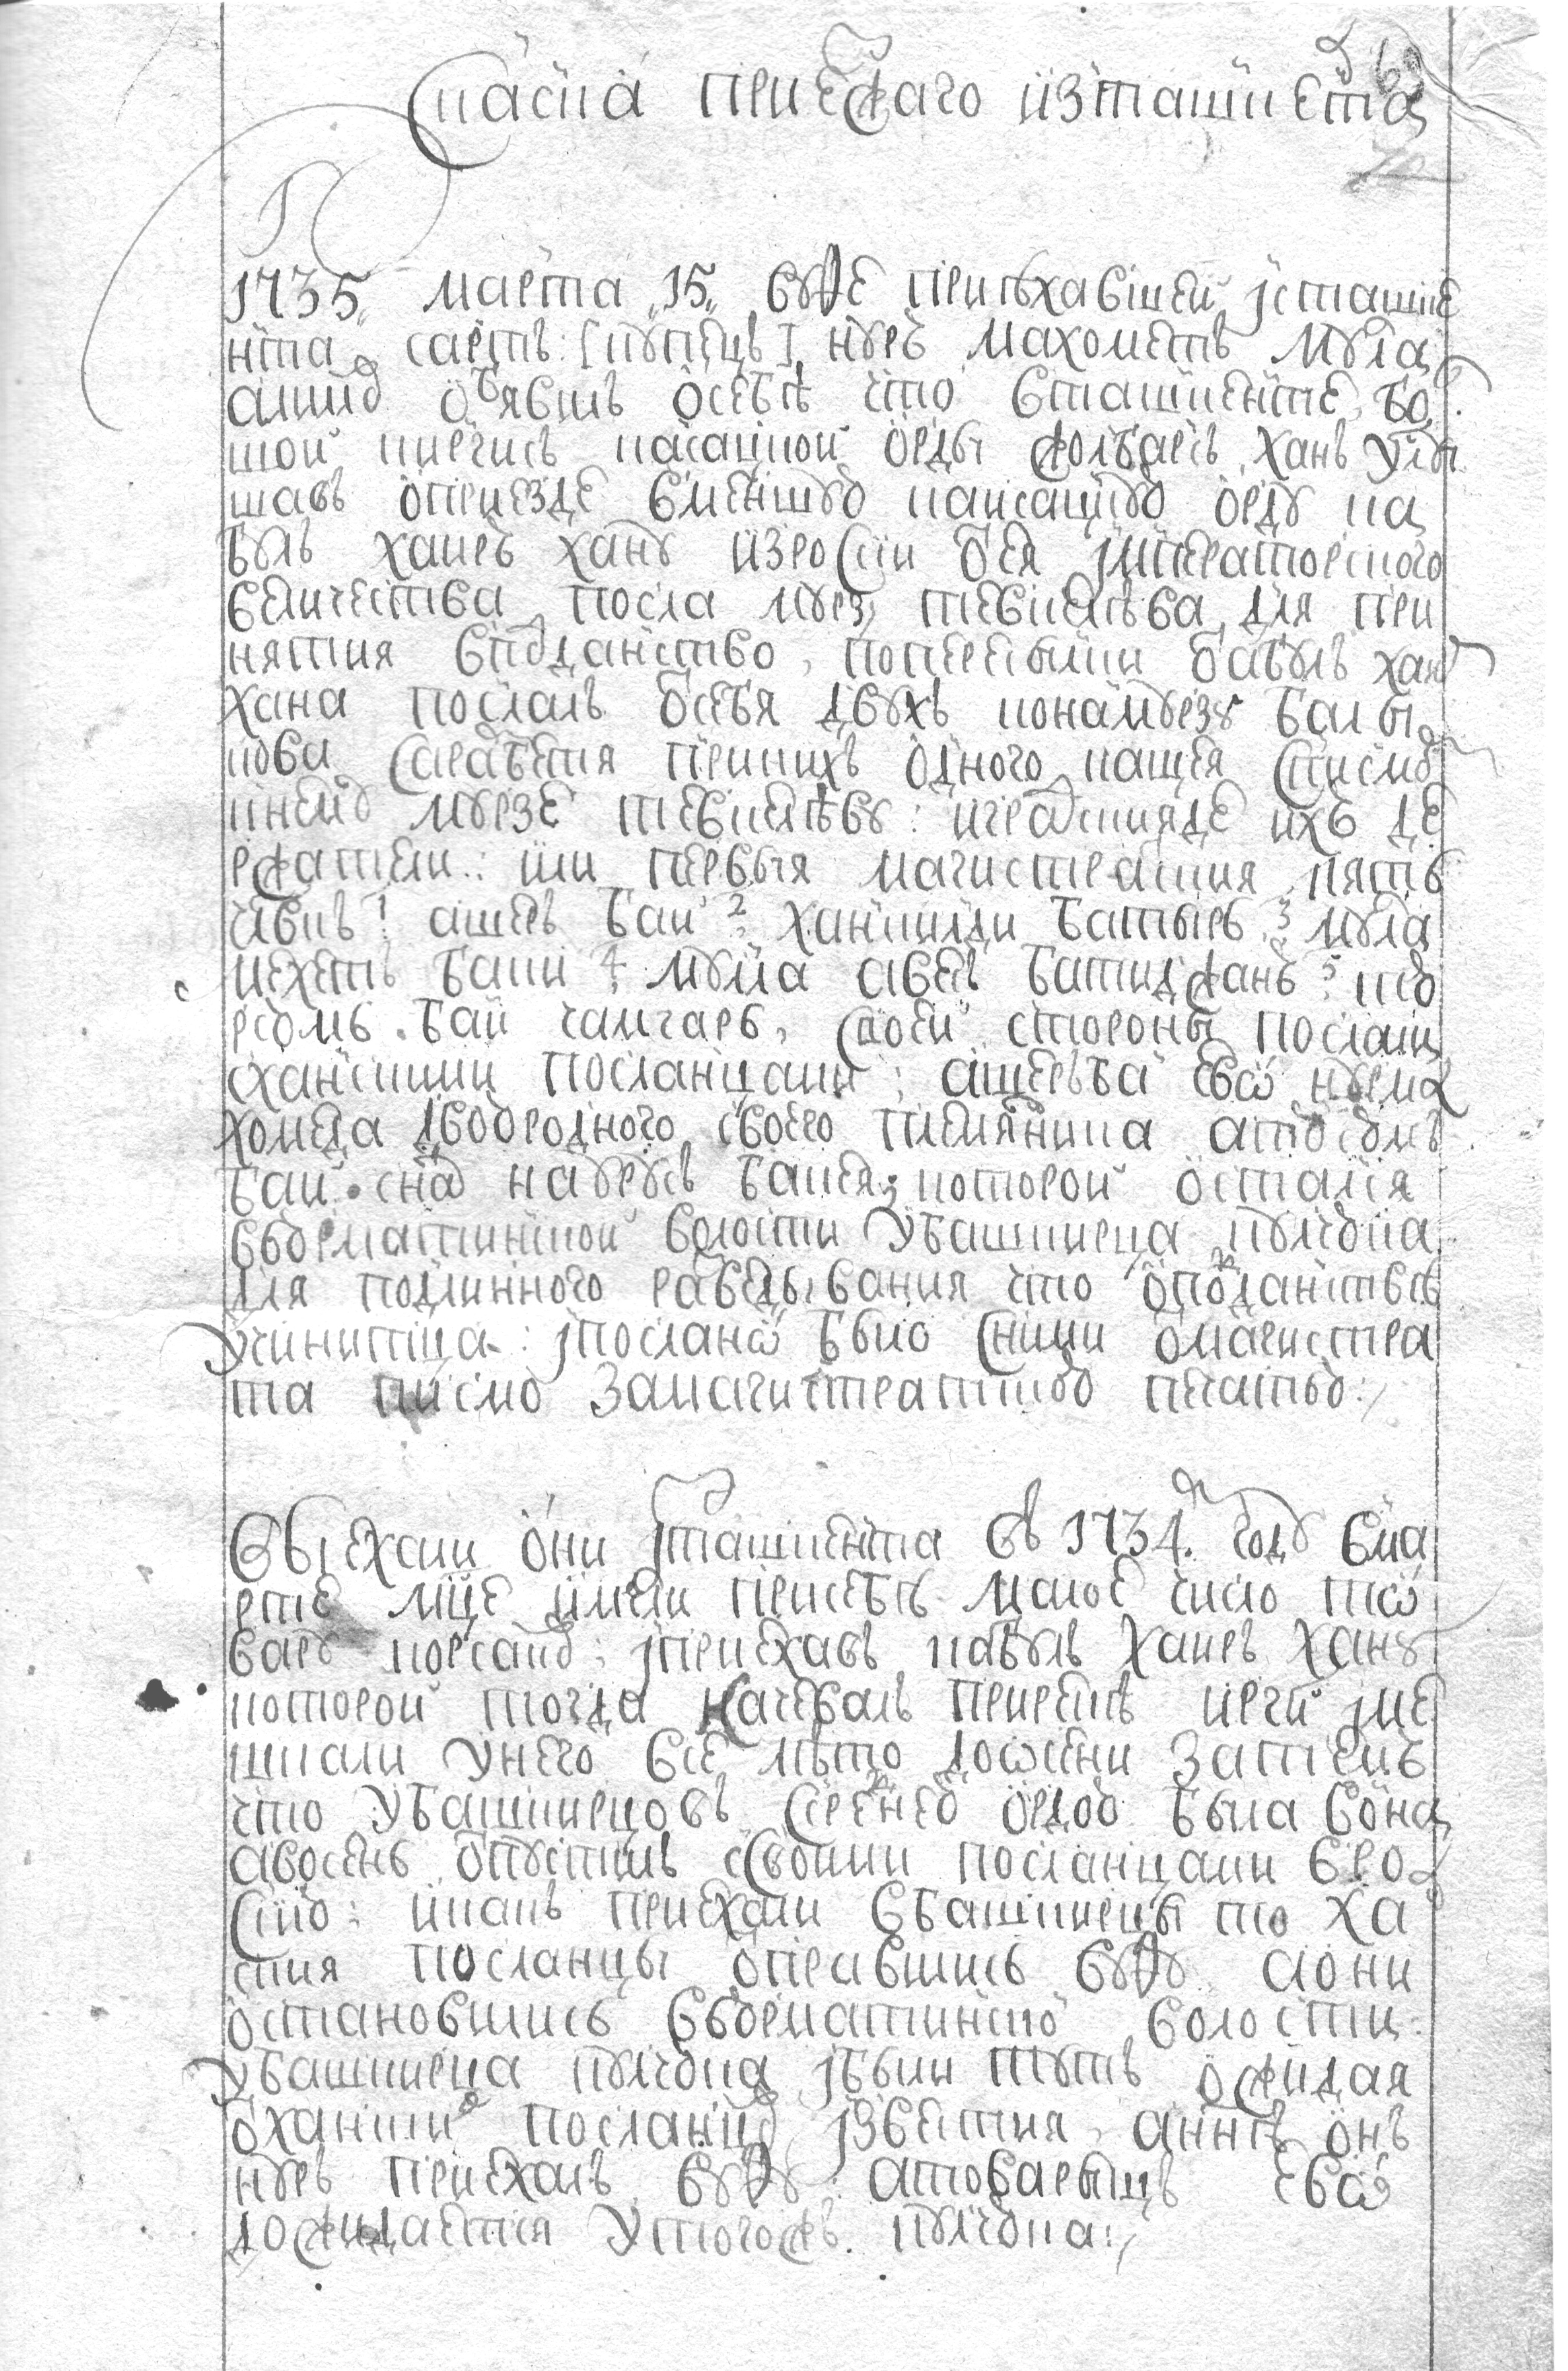 Скаска приезжаго изташкента
1735, марта 15, вуфе приѣхавшей јсташке
нта сартъ: [купецъ] нуръ махометъ мула
алимъ обявилъ осебѣ что вташкенте бо
шой киргисъ касацкой орды жолбарсъ ханъ услы
шавъ оприезде вменшую каисацкую орду ка
булъ хаиръ хану изросии ѿея јмператорского
величества посла мурзы тевкелѣва для при
нятия вподданство, попересылки ѿабулъ хаир
хана послалъ ѿсебя двухъ
кова саработя приних одного кащея списмо
кнему мурзе тевкелѣву: игородския де ихъ де
ржатели: или первыя магистратския пять
члвкъ 1 ашеръ баи 2 ханкилди батырь 3 мула
мехетъ баки 4 мулла авезъ батиджанъ 5
баи чамгаръ, своеи стороны послали
сханскими посланцами: ашеръ баи ево нурма
хомета двоюродного своего племянника
баи сна наурусъ бакея, которой остался
ввурматинскои волости убашкирца кулчюка
для подлинного разведывания что оподданствѣ
учинитца: јпослано было сними ѿмагистра
та писмо замагистратскою печатью:

Выехали они јташкента въ 1734 году вма
рте мце имели присебѣ малое число то
вару посламъ: јприехавъ кабулъ хаиръ хану
которой тогда качевалъ приреке иргиз јме
шкали унего все лѣто доосени затемъ
что убашкирцовъ среднею ордою была воина
авосень ѿпустилъ сосвоими посланцами вро
сию: икакъ приехали вбашкирцы то ха
ския посланцы ѿправились вуфу аони
остановились ввурматинской волости
убашкирца кулчюка јбыли тутъ ожидая
ѿханских посланцов јзвестия, аннѣ онъ
нуръ приехалъ вуфу атоварыщъ ево
дожидается утогожъ кулчюка: